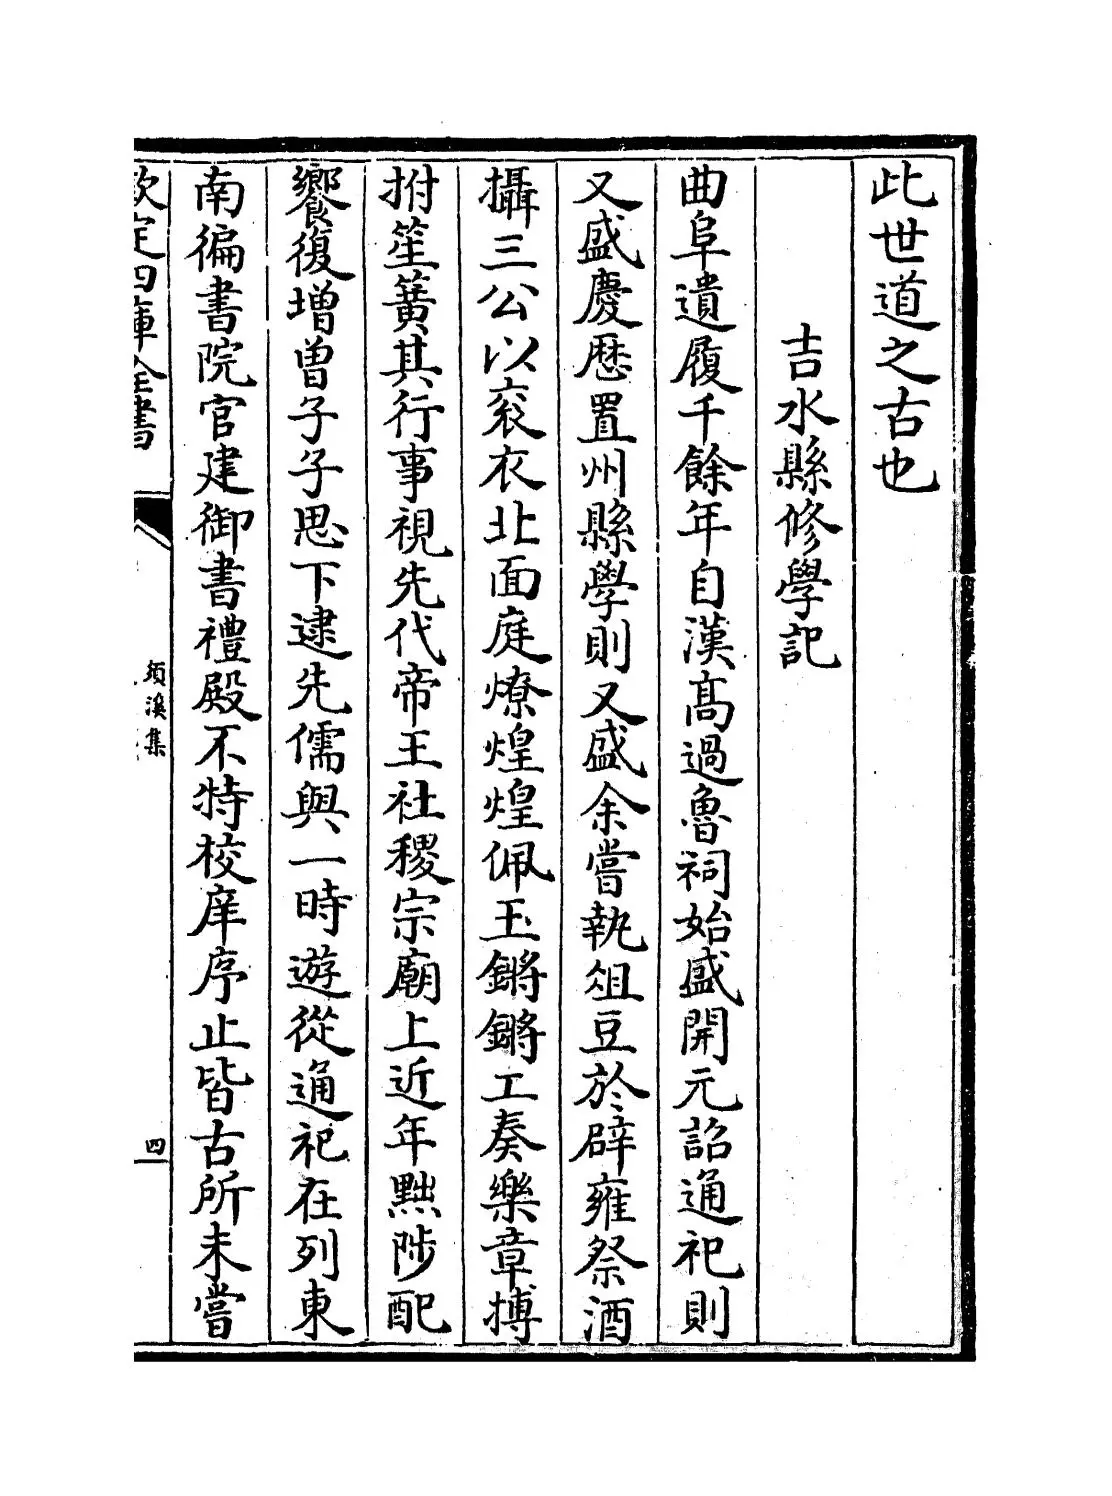 此世道之古也
吉水縣修學記
曲阜遺履千餘年自漢髙過魯祠始盛開元詔通祀則
又盛慶厯置州縣學則又盛余嘗執俎豆於辟雍祭酒
攝三公以衮衣北面庭燎煌煌佩玉鏘鏘工奏樂章搏
拊笙簧其行事視先代帝王社稷宗廟上近年黜陟配
饗復增曽子子思下逮先儒與一時遊從通祀在列東
南徧書院官建御書禮殿不特校庠序止皆古所未嘗
欽定四庫全書
須溪集
四